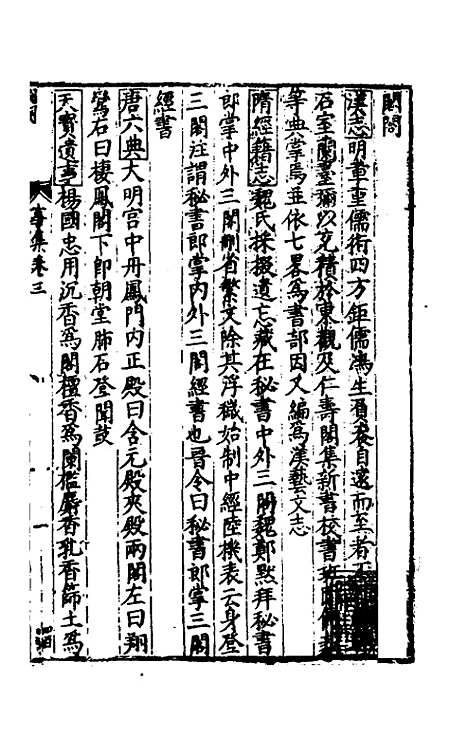 閣閤
漢志明章重儒術四方鉅儒鴻生負袠自遠而至者不
石室蘭臺彌以充積於東觀及仁壽閣集新書校書班固傅
等典掌焉並依七畧爲書部固又編爲漢藝文志
隋經籍志魏氏採掇遺忘藏在秘書中外三閣魏鄭黙拜秘書
郎掌中外三閣刪省繁文除其浮穢始制中經陸機表云身登
三閣注謂秘書郎掌内外三閣經書也晉令曰秘書郎掌三閣
經書
唐六典大明宫中丹鳳門内正殿曰含元殿夾殿兩閣左曰翔
鸞右曰棲鳳閣下即朝堂肺石登聞鼓
天寳遺事楊國忠用沉香爲閣檀香爲闌檻麝香乳香篩土爲
事集卷三
一